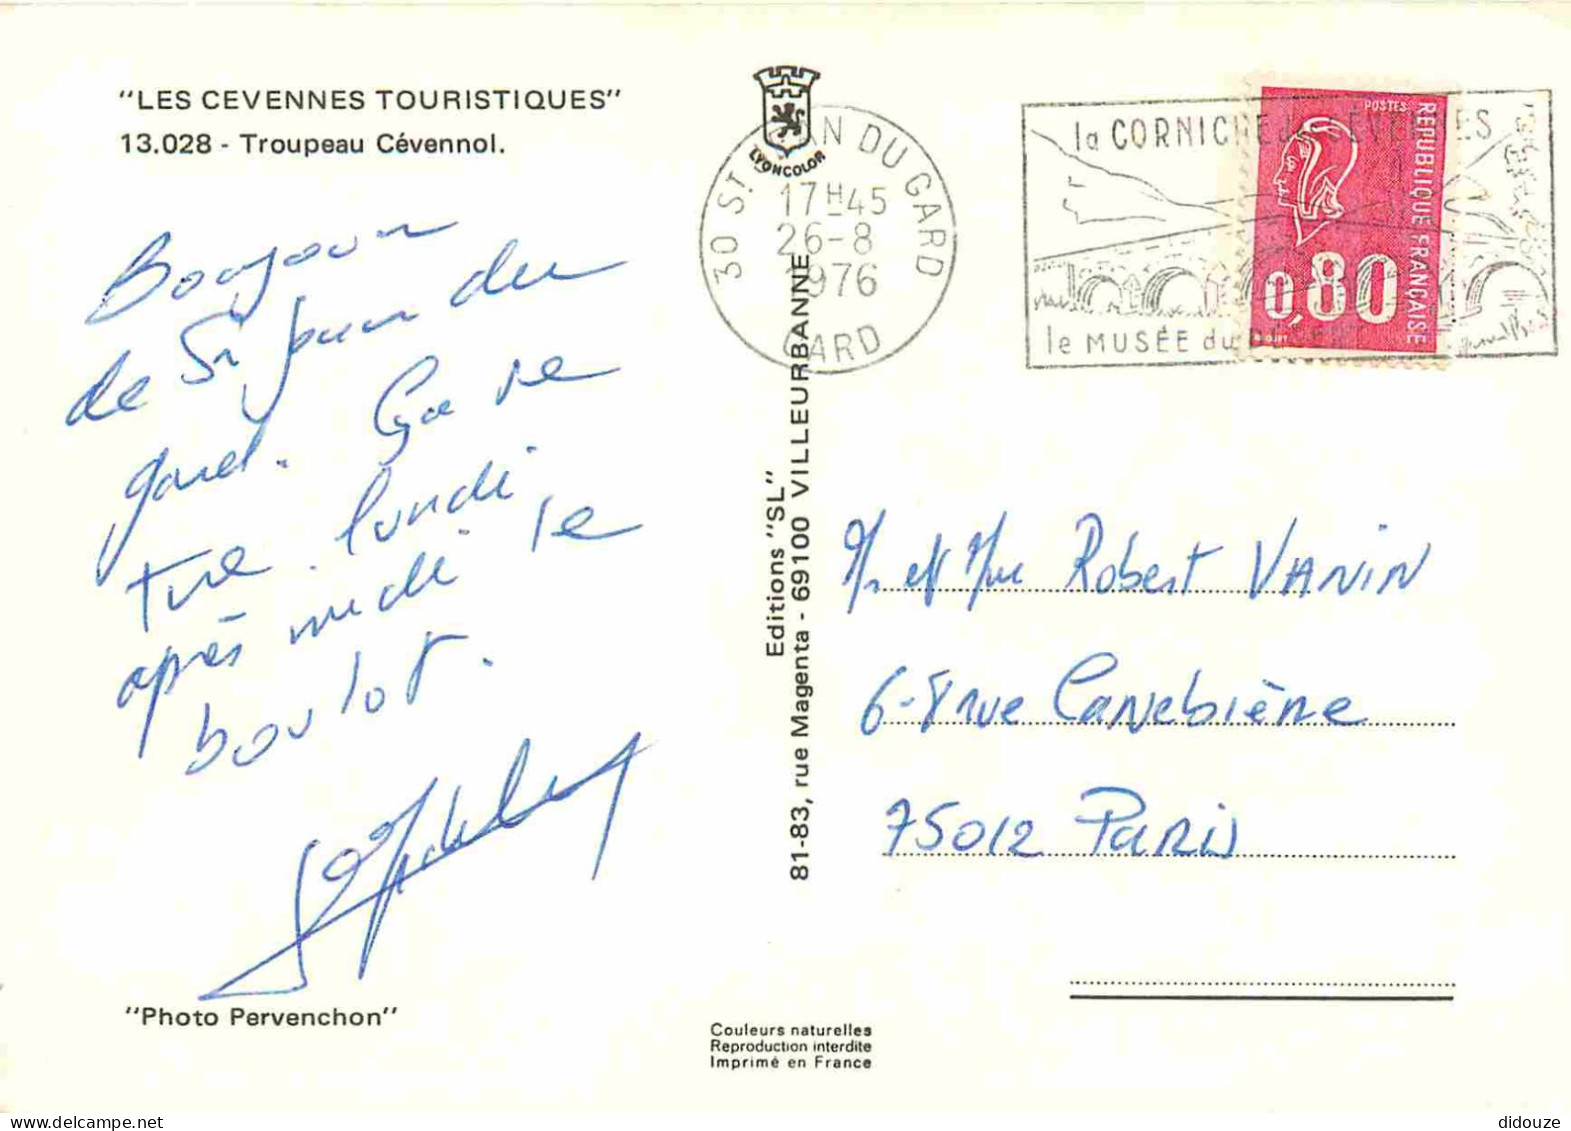 "LES CEVENNES TOURISTIQUES"
13.028 - Troupeau Cévennol.
Bonjour du
de St Jean du
gard. Ça se
tire. lundi
après midi le
boulot.
"Photo Pervenchon"
LYONCOLOR
30 ST JEAN DU GARD
17H45
26-8
1976
GARD
la CORNICHE des CÉVENNES
le MUSÉE du
POSTES
REPUBLIQUE FRANÇAISE
0,80
Editions "SL"
81-83, rue Magenta - 69100 VILLEURBANNE
Mr et Mme Robert VANIN
6-8 rue Canebière
75012 Paris
Couleurs naturelles
Reproduction interdite
Imprimé en France
didouze